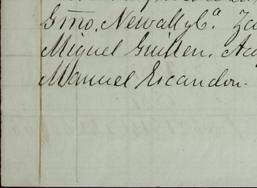 Gmo, Newall y Ca. Za
Miguel Guillen. Au
Manuel Escandon.